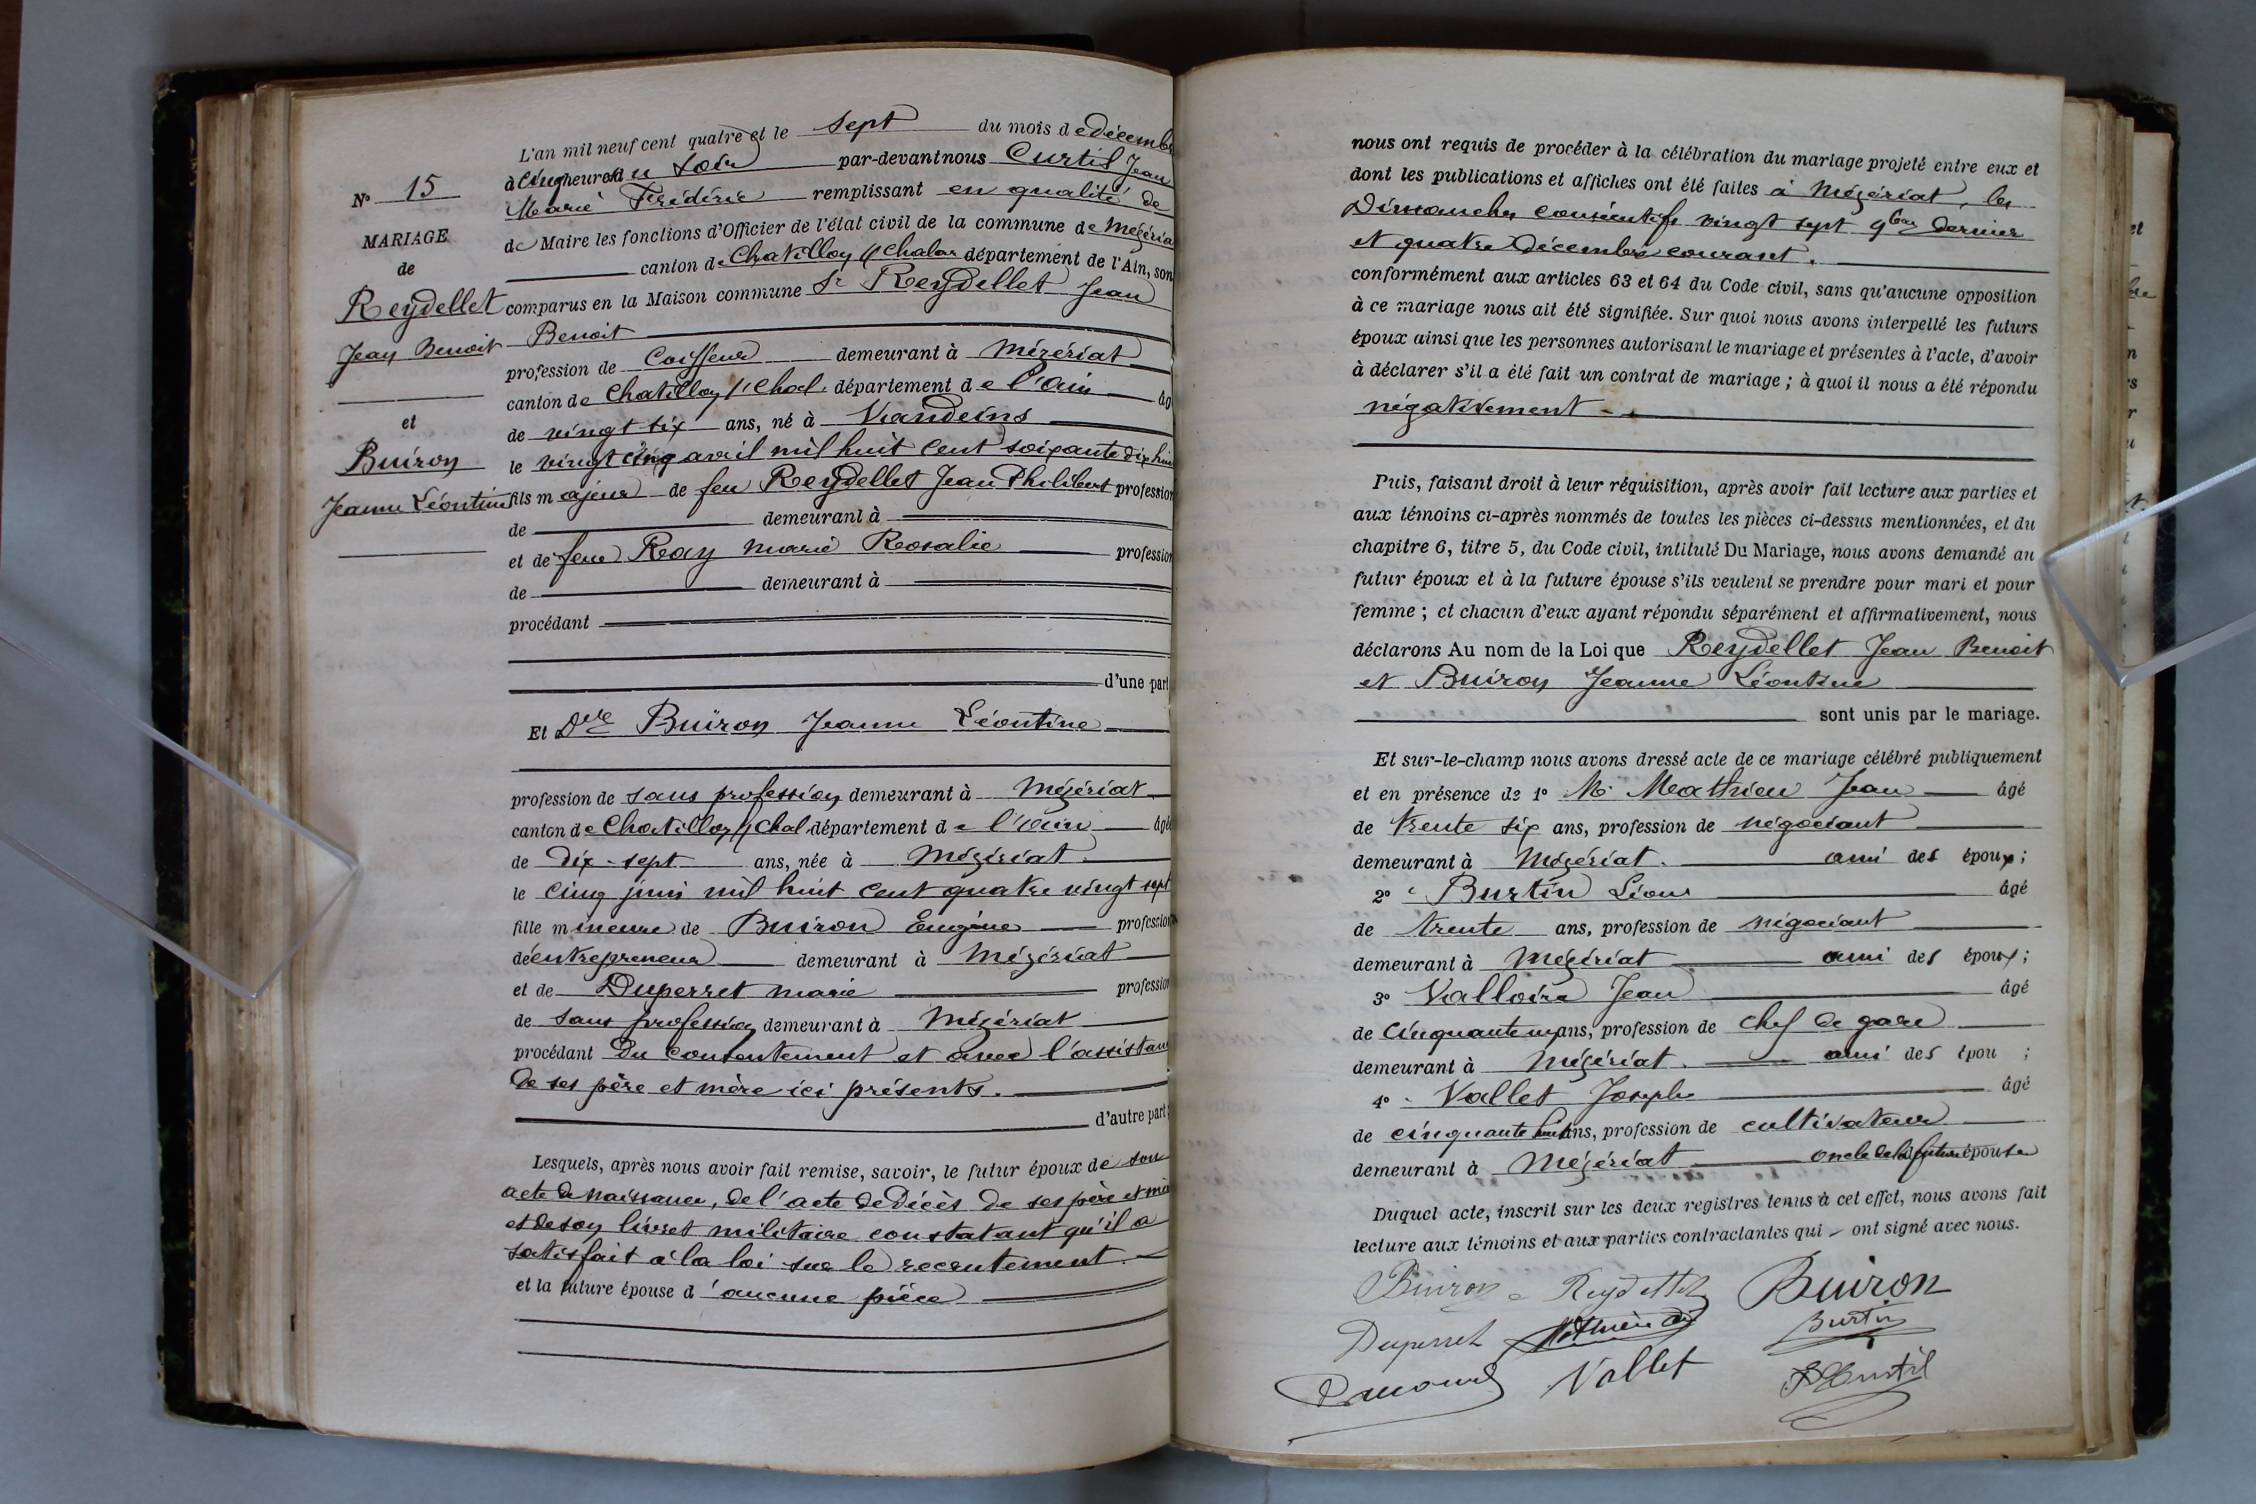 N° 15
MARIAGE
de
Reydellet
Jean Benoit
et
Buiron
Jeanne Léontine
L'an mil neuf cent quatre et le sept du mois de décemb
à cinq heures du soir par-devant nous Curtil Jean
Marie Frédéric remplissant en qualité de
de Maire les fonctions d'Officier de l'état civil de la commune de Mézéria
canton de Chatillon s/ Chalar département de l'Ain, son
comparus en la Maison commune Sr Reydellet Jean
Benoit
profession de Coiffeur demeurant à Mézériat
canton de Chatillon s/ Chal. département de l'Ain âg
de vingt six ans, né à Vandeins
le vingt cinq avril mil huit cent soixante dix hui
fils majeur de feu Reydellet Jean Philibert profession
de demeurant à
et de feue Ray Marie Rosalie profession
de demeurant à
procédant
d'une part
Et Dlle Buiron Jeanne Léontine
profession de sans profession demeurant à Mézériat
canton de Chatillon s/ Chal. département de l'Ain âgée
de dix-sept ans, née à Mézériat.
le cinq juin mil huit cent quatre vingt sept
fille mineure de Buiron Eugène profession
de entrepreneur demeurant à Mézériat
et de Duperret Marie profession
de sans profession demeurant à Mézériat
procédant du consentement et avec l'assistan
de ses père et mère ici présents.
d'autre part;
Lesquels, après nous avoir fait remise, savoir, le futur époux de son
acte de naissance, de l'acte de Décès de ses père et mèr
et de son livret militaire constatant qu'il a
satisfait à la loi sur le recrutement.
et la future épouse d'aucune pièce
nous ont requis de procéder à la célébration du mariage projeté entre eux et
dont les publications et affiches ont été faites à Mézériat, les
Dimanches consécutifs vingt sept 9bre dernier
et quatre Décembre courant.
conformément aux articles 63 et 64 du Code civil, sans qu'aucune opposition
à ce mariage nous ait été signifiée. Sur quoi nous avons interpellé les futurs
époux ainsi que les personnes autorisant le mariage et présentes à l'acte, d'avoir
à déclarer s'il a été fait un contrat de mariage ; à quoi il nous a été répondu
négativement.
Puis, faisant droit à leur réquisition, après avoir fait lecture aux parties et
aux témoins ci-après nommés de toutes les pièces ci-dessus mentionnées, et du
chapitre 6, titre 5, du Code civil, intitulé Du Mariage, nous avons demandé au
futur époux et à la future épouse s'ils veulent se prendre pour mari et pour
femme ; et chacun d'eux ayant répondu séparément et affirmativement, nous
déclarons Au nom de la Loi que Reydellet Jean Benoit
et Buiron Jeanne Léontine
sont unis par le mariage.
Et sur-le-champ nous avons dressé acte de ce mariage célébré publiquement
et en présence de 1° M. Mathieu Jean âgé
de trente six ans, profession de négociant
demeurant à Mézériat. ami des époux;
2° Burtin Léon âgé
de trente ans, profession de négociant
demeurant à Mézériat ami des époux;
3° Valloire Jean âgé
de cinquante un ans, profession de chef de gare
demeurant à Mézériat. ami des épou ;
4° Vallet Joseph âgé
de cinquante huit ans, profession de cultivateur
demeurant à Mézériat oncle de la future épouse
Duquel acte, inscrit sur les deux registres tenus à cet effet, nous avons fait
lecture aux témoins et aux parties contractantes qui ont signé avec nous.
Buiron Reydellet Buiron
Duperret Mathieu Burtin
Vallet Curtil